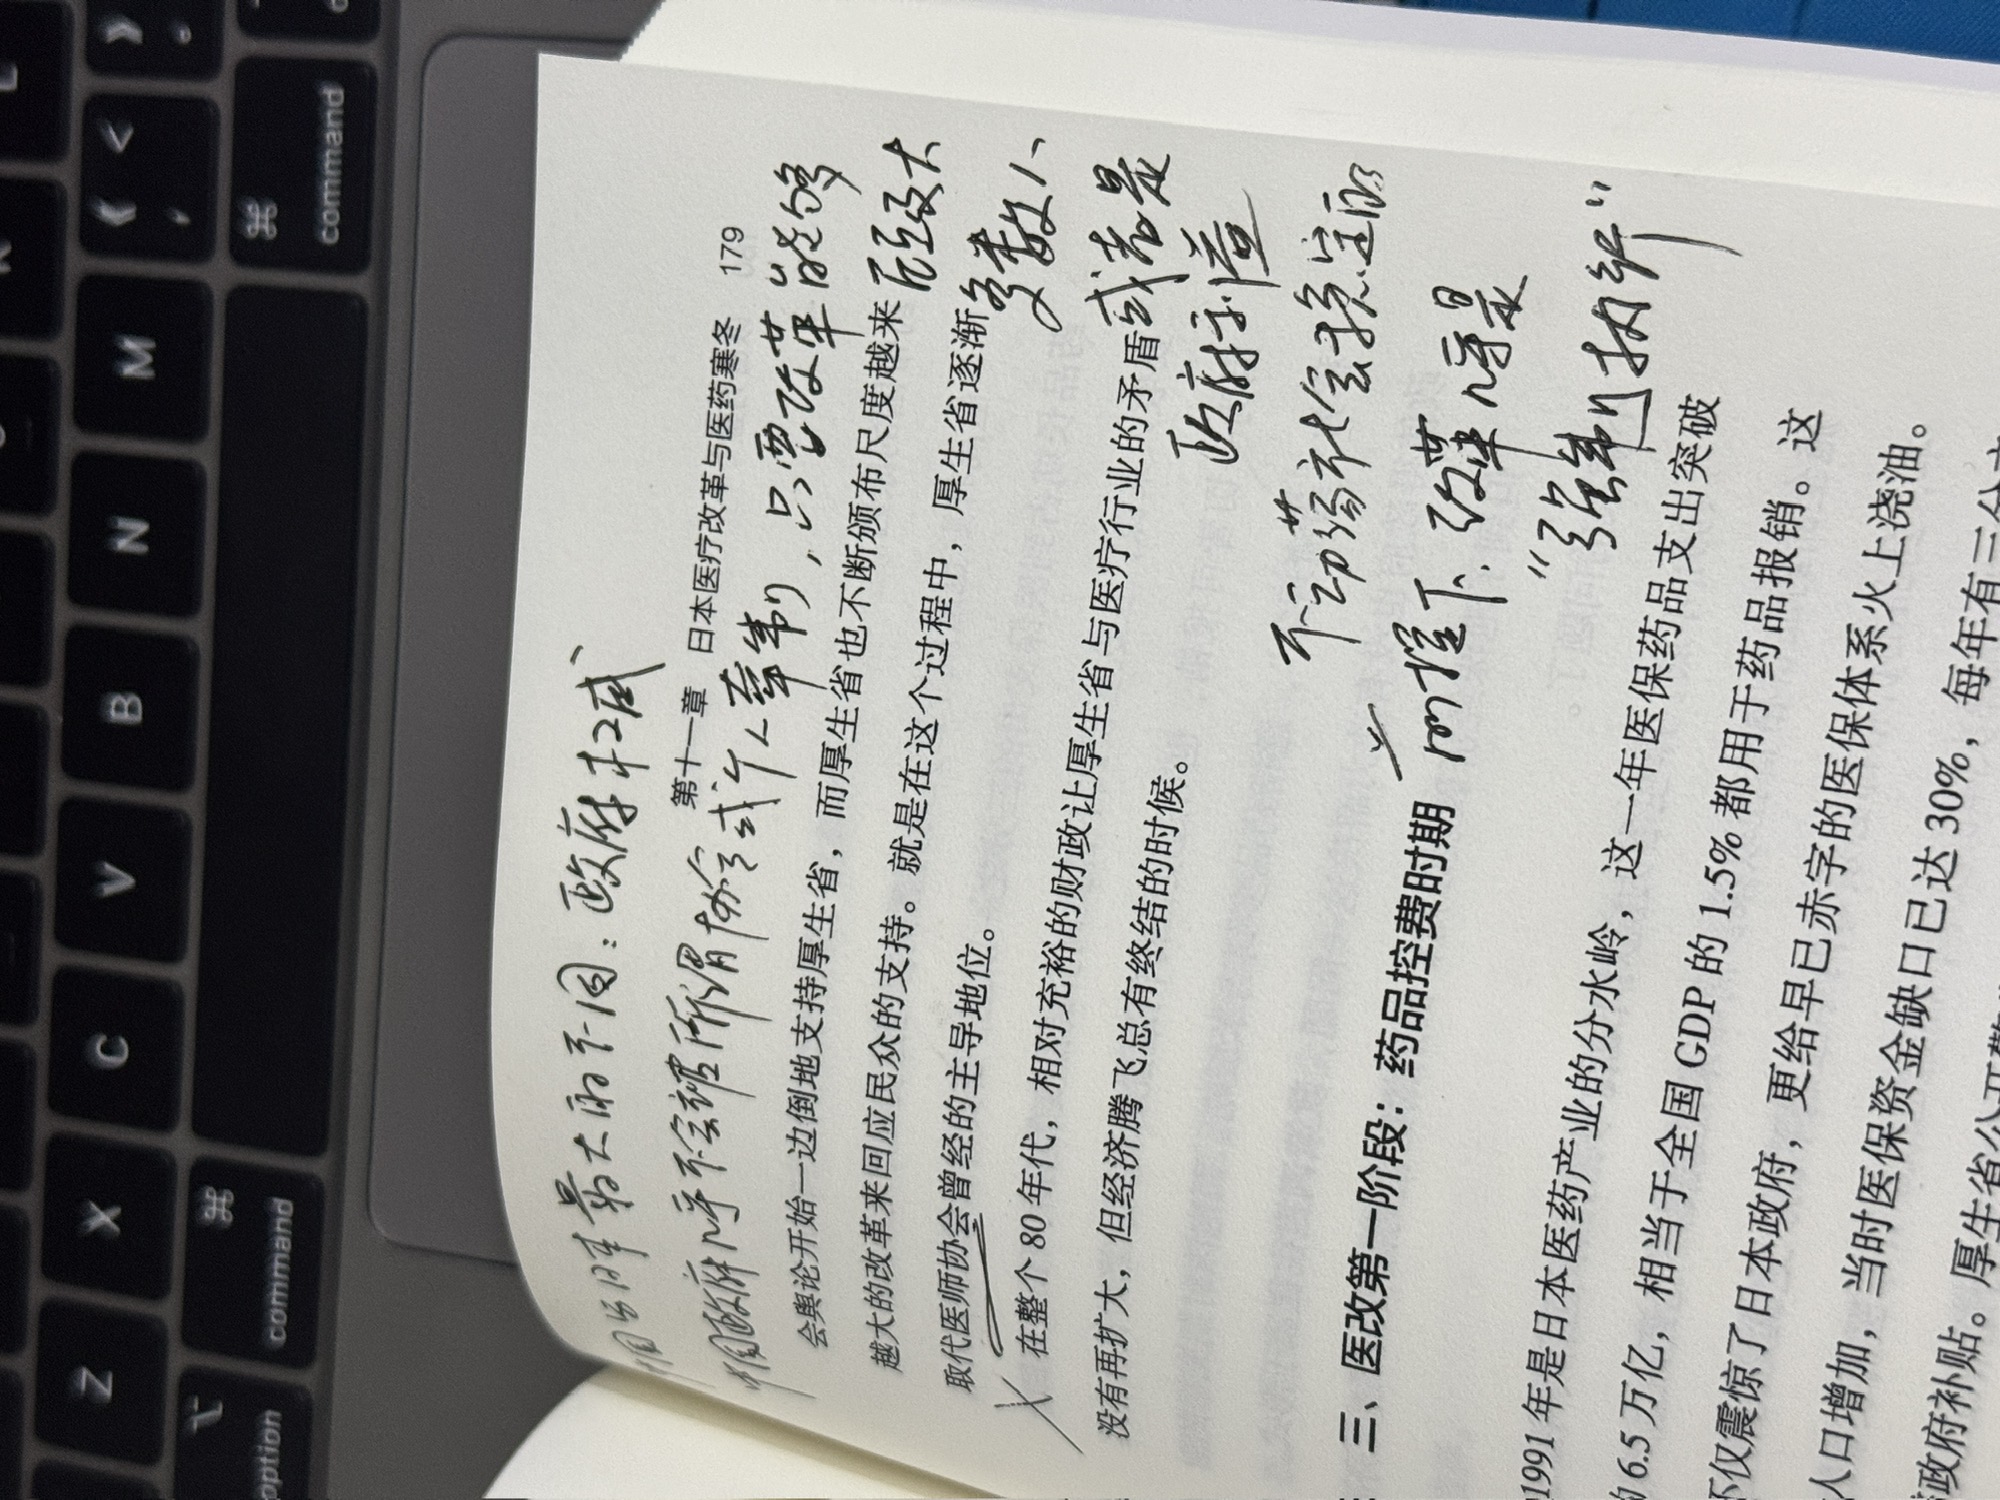 中国与日本最大的不同：政府权威
中国政府几乎不会被所谓协会或个人牵制，只要改革能够
照顾大
多数人
或者是
政府在
不动荡社会稳定的
前提下，改革几乎是
“强制执行”
第十一章 日本医疗改革与医药寒冬 179
会舆论开始一边倒地支持厚生省，而厚生省也不断颁布尺度越来
越大的改革来回应民众的支持。就是在这个过程中，厚生省逐渐
取代医师协会曾经的主导地位。
在整个 80 年代，相对充裕的财政让厚生省与医疗行业的矛盾
没有再扩大，但经济腾飞总有终结的时候。
三、医改第一阶段：药品控费时期
1991 年是日本医药产业的分水岭，这一年医保药品支出突破
6.5 万亿，相当于全国 GDP 的 1.5% 都用于药品报销。这
不仅震惊了日本政府，更给早已赤字的医保体系火上浇油。
人口增加，当时医保资金缺口已达 30%，每年有三分之
政府补贴。厚生省公开警
command
option
Z
X
C
V
B
N
M
command